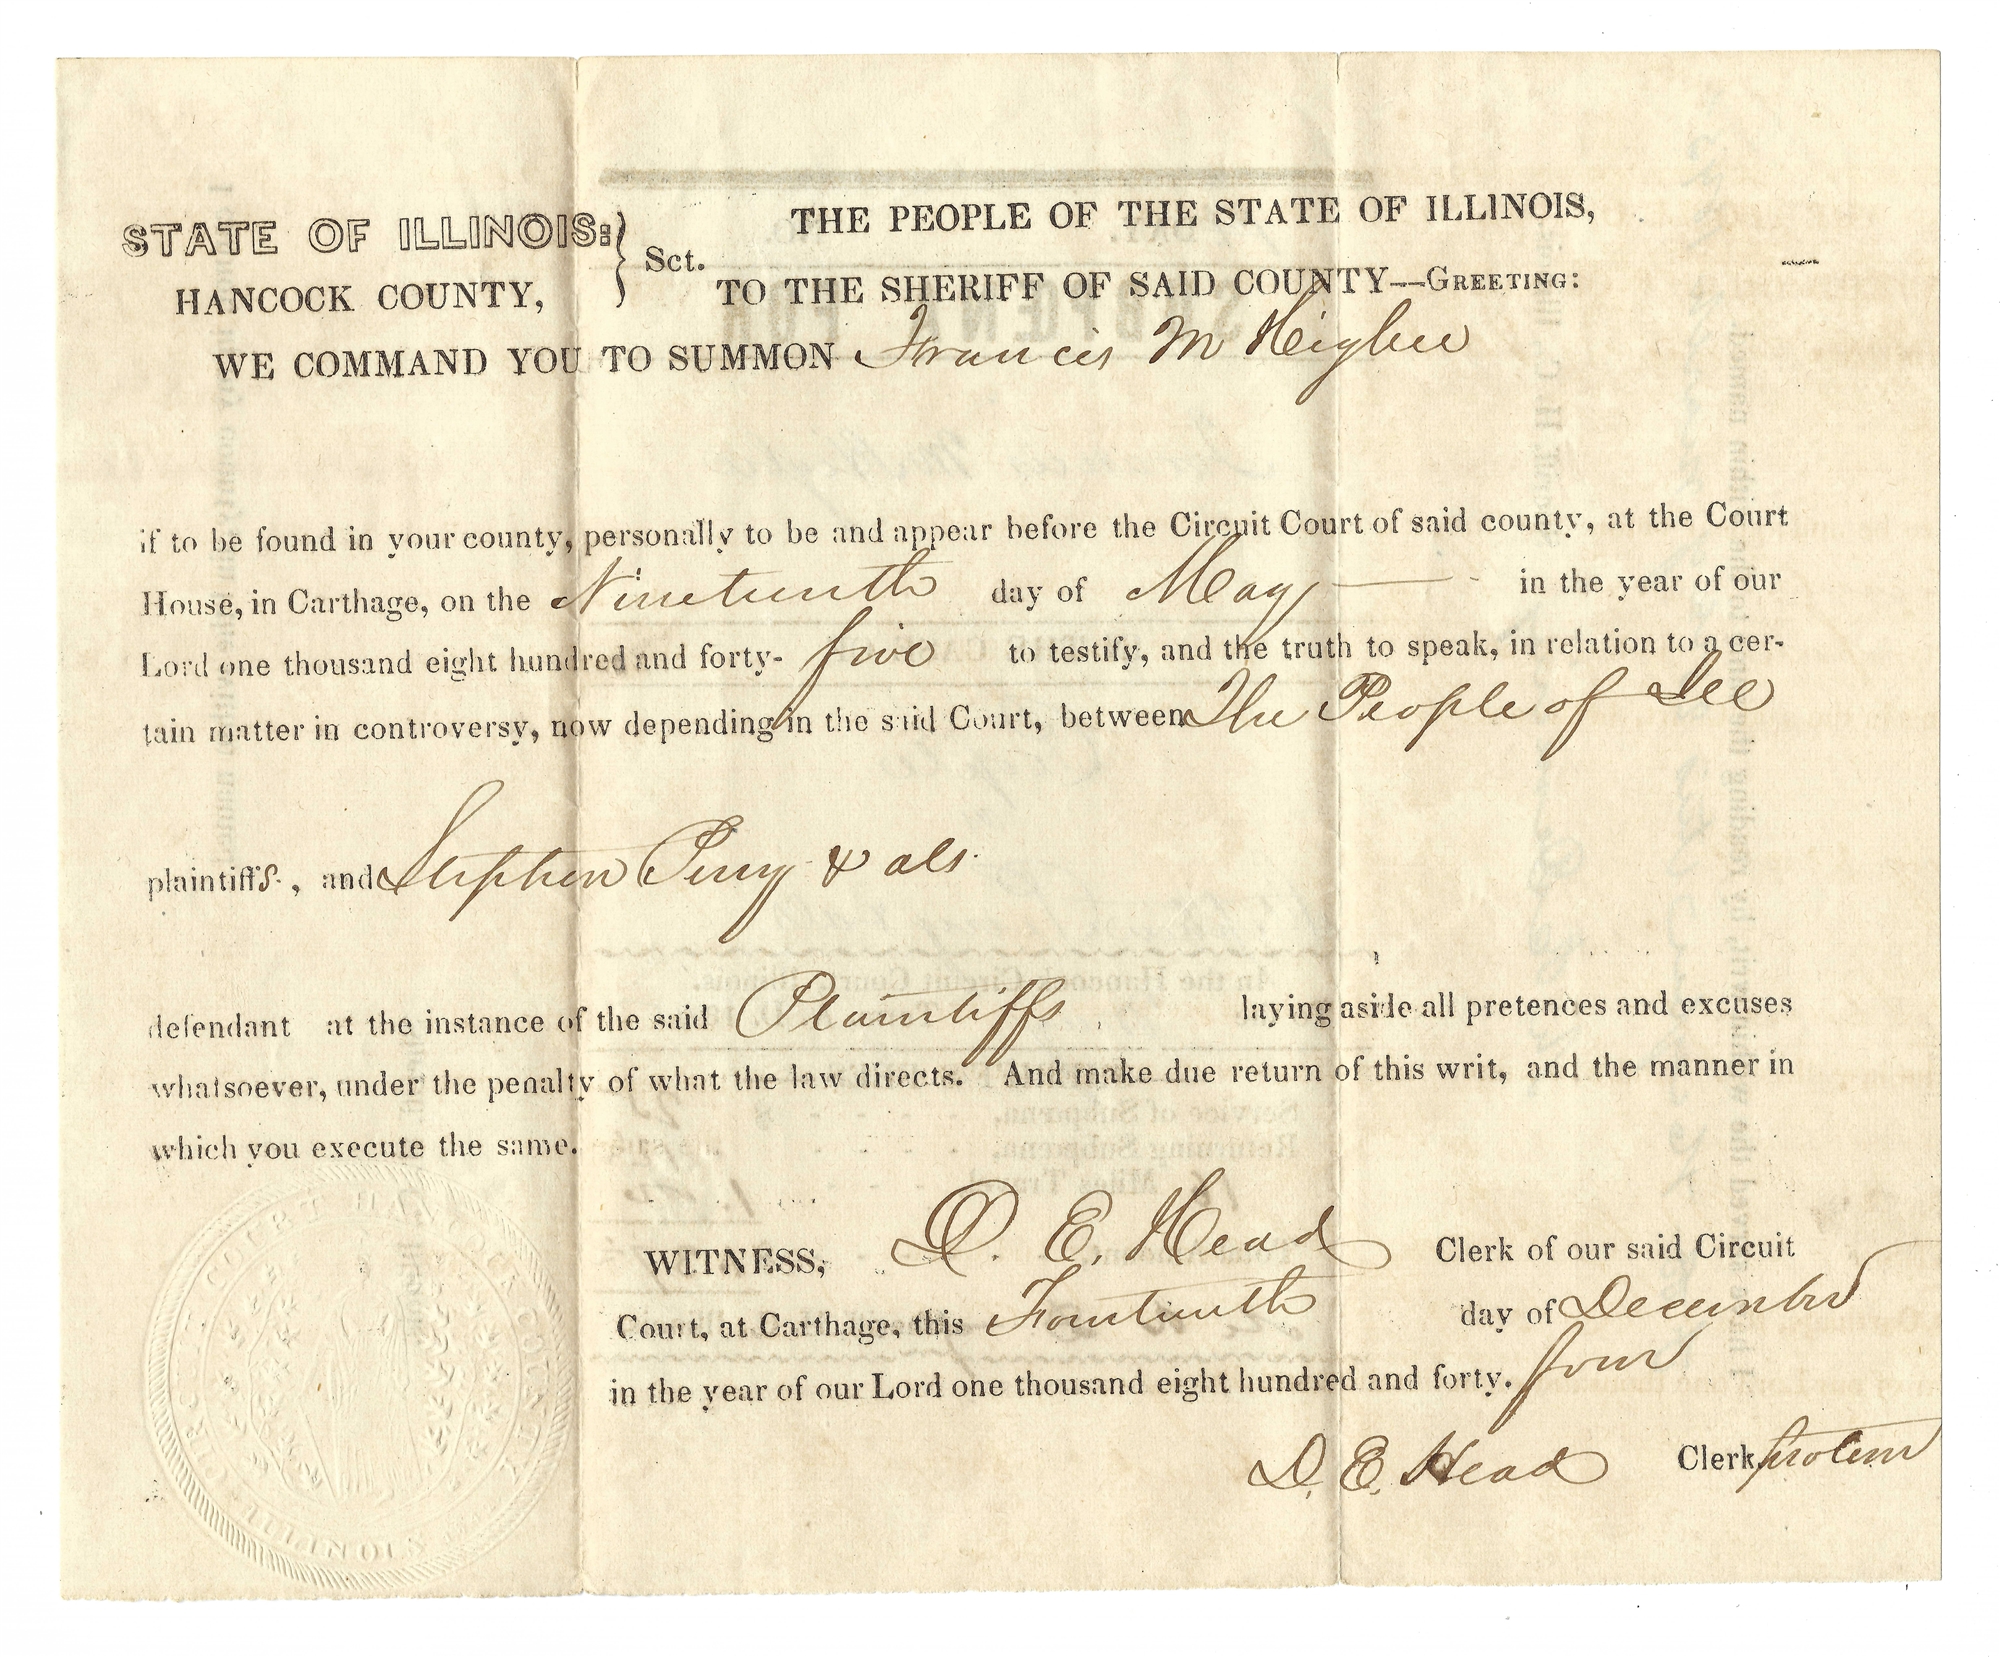 STATE OF ILLINOIS:
HANCOCK COUNTY,
Sct.
THE PEOPLE OF THE STATE OF ILLINOIS,
TO THE SHERIFF OF SAID COUNTY—GREETING:
WE COMMAND YOU TO SUMMON Francis M Higbee
if to be found in your county, personally to be and appear before the Circuit Court of said county, at the Court
House, in Carthage, on the Nineteenth day of May in the year of our
Lord one thousand eight hundred and forty- five to testify, and the truth to speak, in relation to a cer-
tain matter in controversy, now depending in the said Court, between The People of Ill
plaintiffs, and Stephen Perry & als.
defendant at the instance of the said Plaintiffs laying aside all pretences and excuses
whatsoever, under the penalty of what the law directs. And make due return of this writ, and the manner in
which you execute the same.
WITNESS, D. E. Head Clerk of our said Circuit
Court, at Carthage, this Fourteenth day of December
in the year of our Lord one thousand eight hundred and forty. four
D. E. Head Clerk protem
COURT HANCOCK COUNTY
ILLINOIS